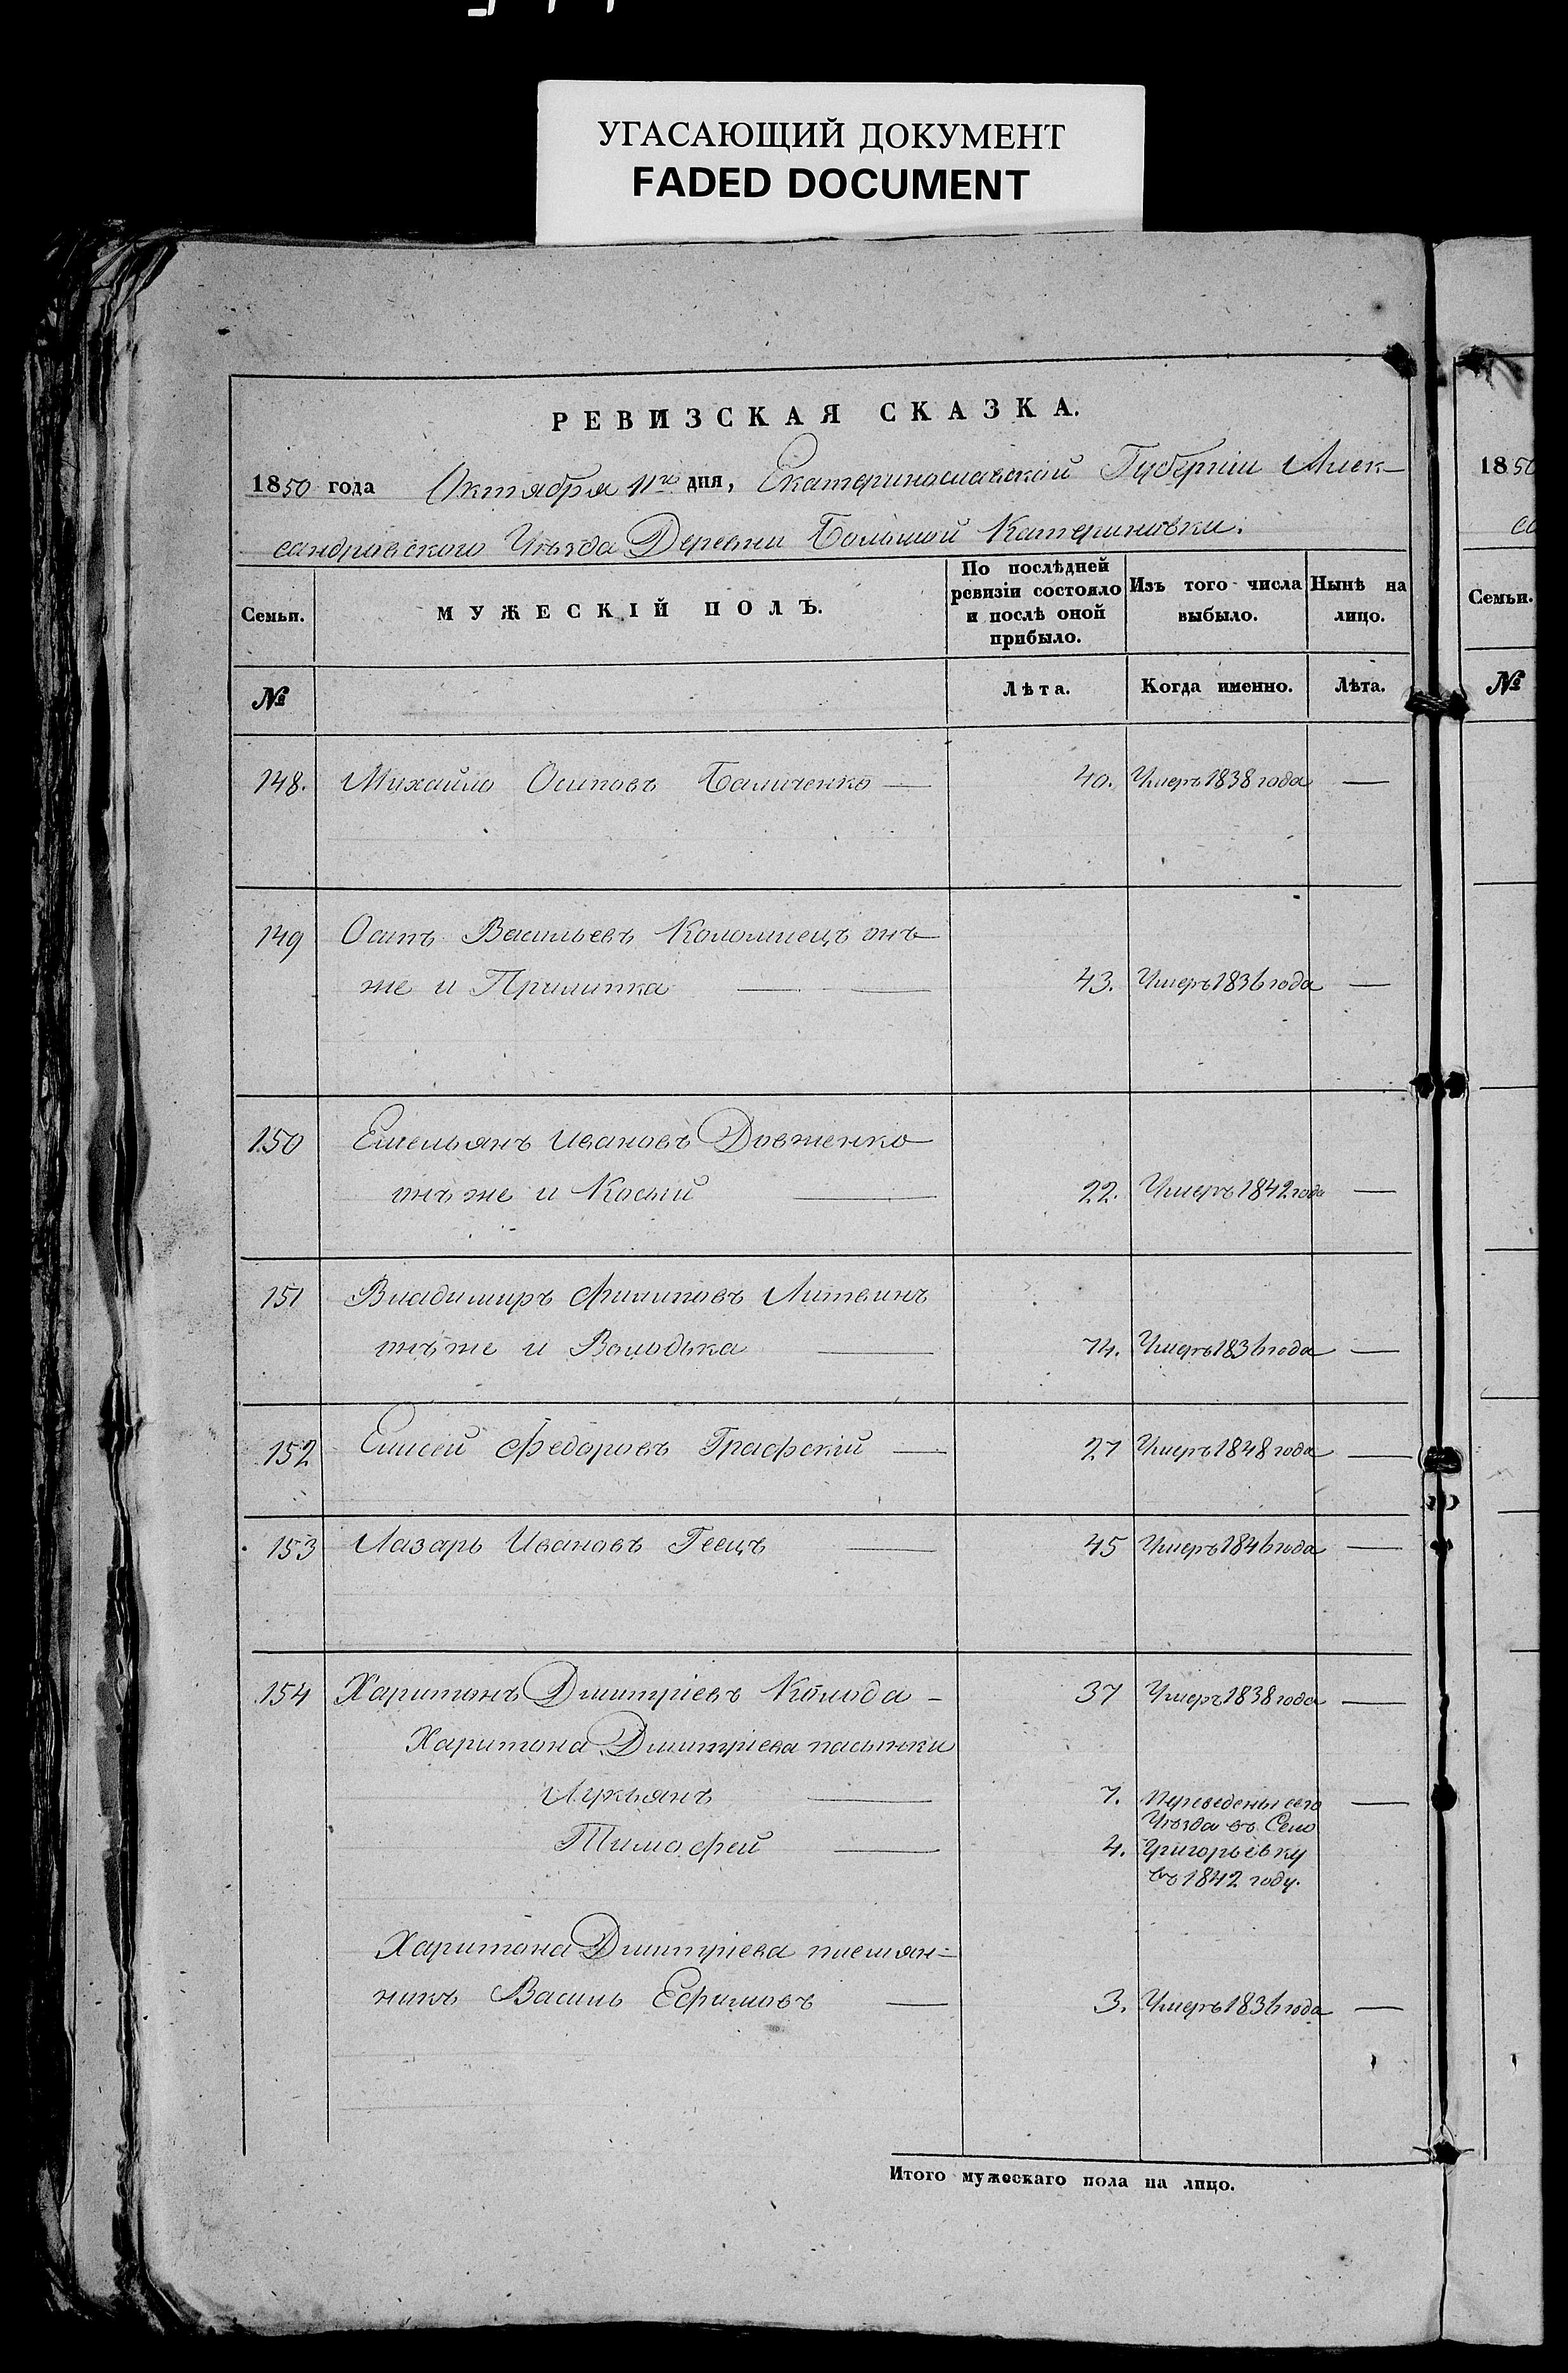 УГАСАЮЩИЙ ДОКУМЕНТ
FADED DOCUMENT
РЕВИЗСКАЯ СКАЗКА.
1850 года Октября 11го дня, Екатеринославской Губерніи Алек-
сандровского Уѣзда Деревни Большой Катериновки.
Семьи. МУЖЕСКІЙ ПОЛЪ. По послѣдней ревизіи состояло и послѣ оной прибыло. Изъ того числа выбыло. Нынѣ на лицо.
№ Лѣта. Когда именно. Лѣта.
148. Михайло Осиповъ Баличенко — 40. Умеръ 1838 года —
149 Осипъ Васильевъ Коломиецъ онъ
же и Прилипка — — 43. Умеръ 1836 года —
150 Емельянъ Ивановъ Довженко
онъ же и Косый — 22. Умеръ 1842 года —
151 Владимиръ Филиповъ Литвинъ
онъ же и Володька — 74. Умеръ 1836 года —
152 Елисей Федоровъ Графскій — 27 Умеръ 1848 года —
153 Лазарь Ивановъ Геецъ — 45 Умеръ 1846 года —
154 Харитонъ Дмитріевъ Колода - 37 Умеръ 1838 года —
Харитона Дмитріева пасынки
Лукьянъ — 7. Переведены сего —
Уѣзда въ Село
Тимофей — 4. Григорьевку
въ 1842 году.
Харитона Дмитріева племян-
никъ Василь Ефимовъ — 3. Умеръ 1836 года —
Итого мужескаго пола на лицо.
1850
са
Семьи.
№